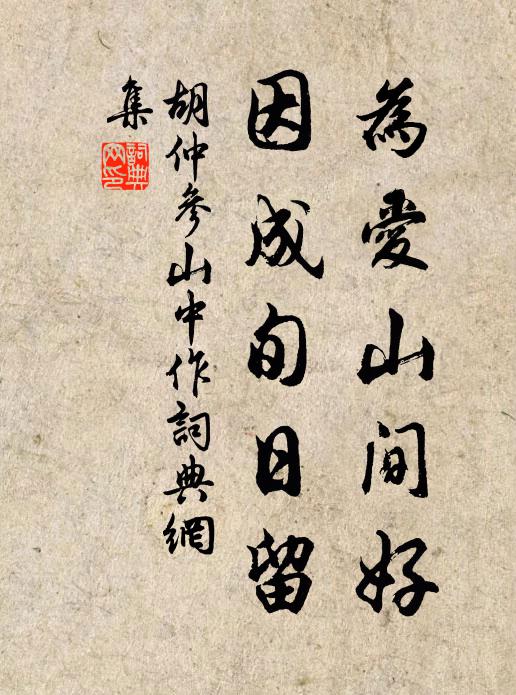 為愛山間好
因成旬日留
胡仲參山中作詞典網
集
詞典
网印